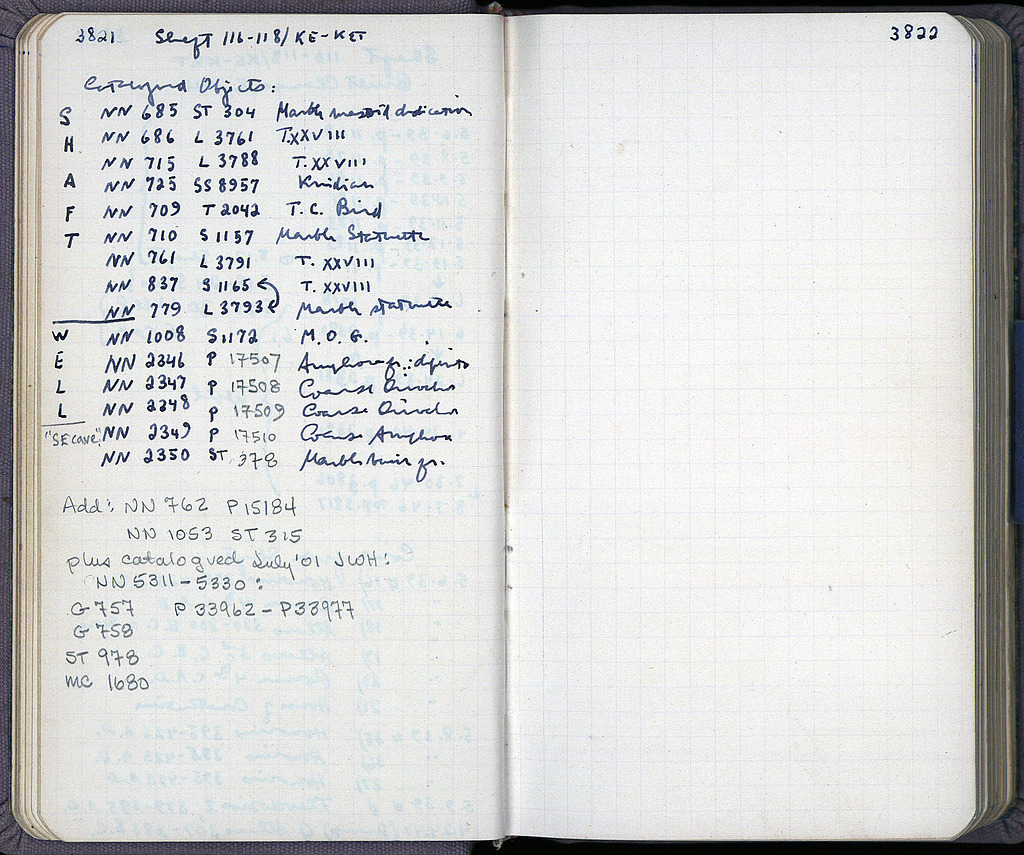 3821 Shaft 116-118/KE-KET
Catalogued Objects:
S NN 685 ST 304 Marble mastoid dedication
H NN 686 L 3761 T.XXVIII
NN 715 L 3788 T.XXVIII
A NN 725 SS 8957 Knidian
F NN 709 T 2042 T.C. Bird
T NN 710 S 1157 Marble Statuette
NN 761 L 3791 T. XXVIII
NN 837 S 1165 T. XXVIII
NN 779 L 3793 Marble statuette
W NN 1008 S 1172 M.O.G.
E NN 2346 P 17507 Amphora fr.: dipinto
L NN 2347 P 17508 Coarse Oinochoe
L NN 2348 P 17509 Coarse Oinochoe
"SE cave" NN 2349 P 17510 Coarse Amphora
NN 2350 ST 378 Marble basin fr.
Add: NN 762 P 15184
NN 1053 ST 315
plus catalogued July '01 JWH:
NN 5311-5330:
G 757 P 33962-P33977
G 758
ST 978
MC 1680
3822